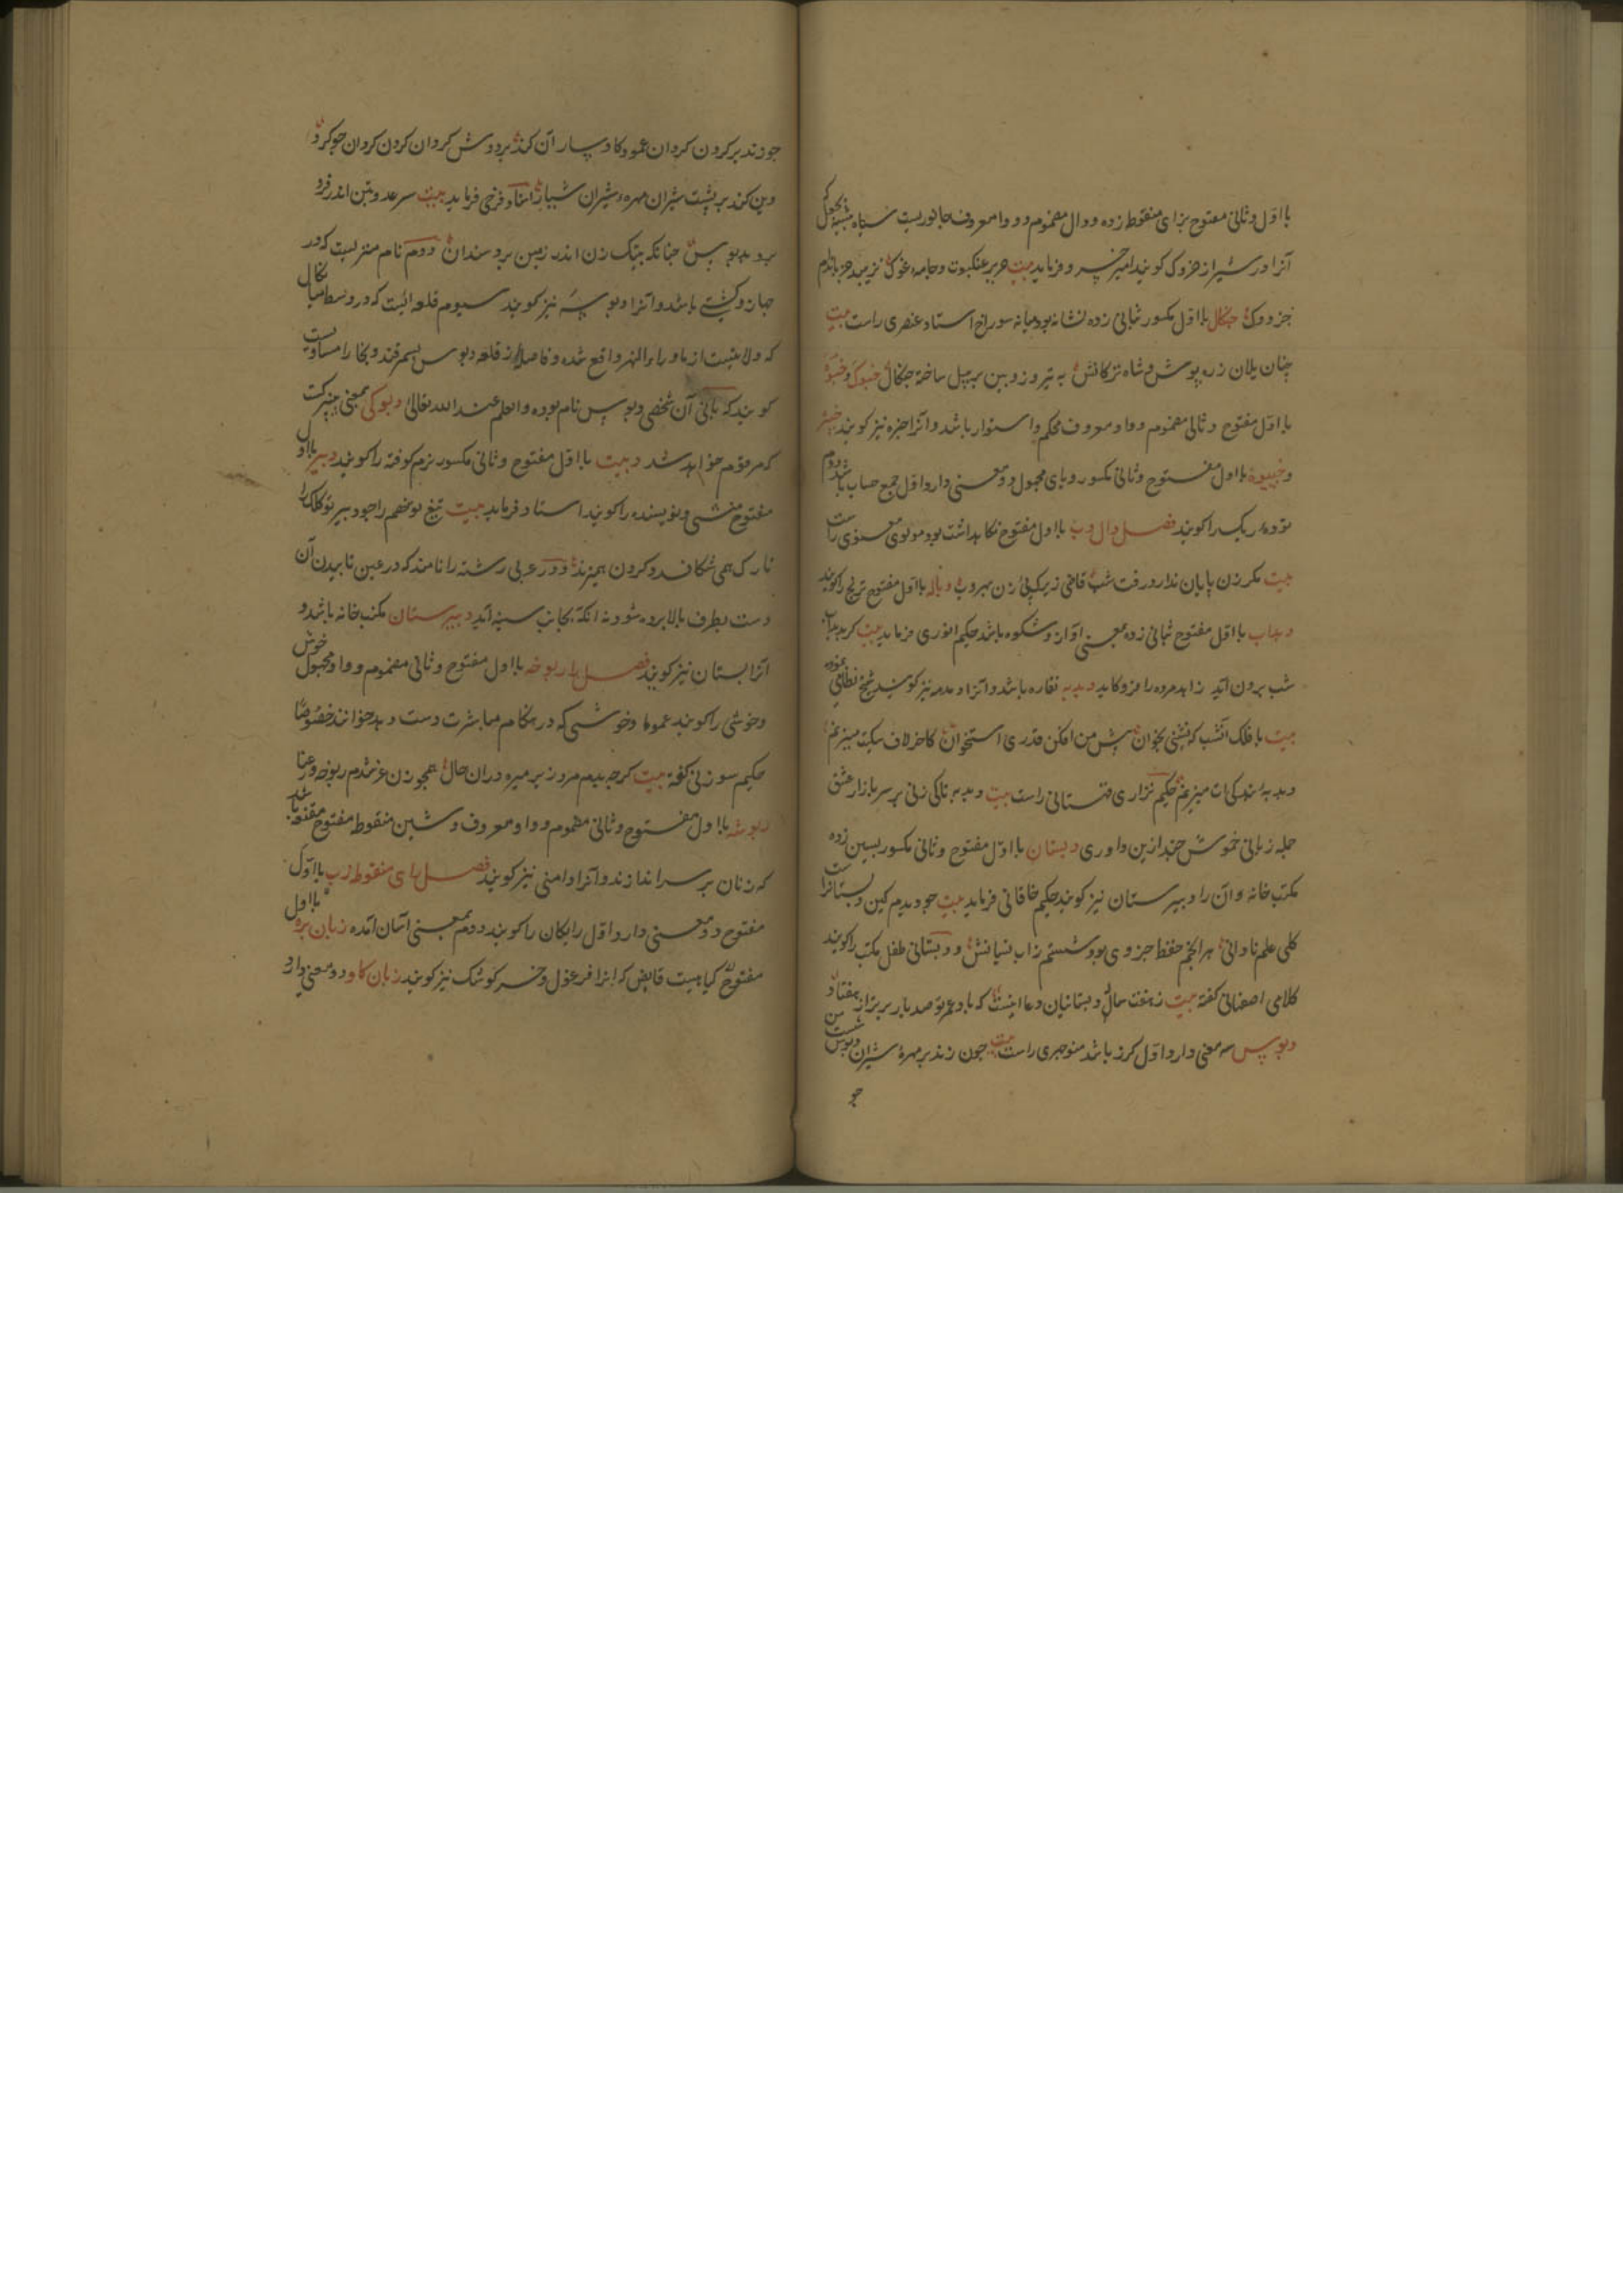 بااول وثانی مفتوح بزای منقوط زده ودال مضموم وواو معروف جانوریست سیاه شبیه بجعل که
آنرا در شیراز خزوک کویند امیر خسرو فرماید بیت حریر عنکبوت وجامه غوک نزیبد جز باندام
خزدوک خبکال بااول مکسور بثانی زده نشانه بود میانه سوراخ استاد عنصری راست بیت
چنان یلان زره پوش وشاه ترکانش به تیر وزوبین بر پیل ساخته خبکال خبوک وخبوه
بااول مفتوح وثانی مضموم وواو معروف محکم واستوار باشد وآنرا خبزه نیز کویند
وخبیوه بااول مفتوح وثانی مکسور ویای مجهول دو معنی دارد اول جمع حساب باشد دوم
توده ریک را کویند فصل دال دب بااول مفتوح نکاهداشت بود مولوی معنوی راست
بیت مکر زن پایان ندارد رفت شب قاضی زیرکی زن بهر دب دباله بااول مفتوح ترنج را کویند
دبداب بااول مفتوح بثانی زده بمعنی آواز وشکوه باشد حکیم انوری فرماید بیت کر بدبداب
شب برون آید زاهد مرده را فرو کاید دبدبه نقاره باشد وآنرا دمدمه نیز کویند شیخ نظامی فرموده
بیت با فلک آنشب که نشینی بخوان پیش من افکن قدری استخوان کاخر لاف سکیت میزنم
دبدبه بندکیات میزنم حکیم نزاری قهستانی راست بیت دبدبه تاکی زنی بر سر بازار عشق
جمله زبانی خموش چند ازین داوری دبستان بااول مفتوح وثانی مکسور بسین زده
مکتب خانه وآن را دبیرستان نیز کویند حکیم خاقانی فرماید بیت چو دیدم کین دبستانراست
کلی علم نادانی هر آنچم حفظ جزوی بود شستم زآب نسیانش ودبستانی طفل مکتب را کویند
کلامی اصفهانی کفته بیت ز هفت سال دبستانیان دعا اینست که باد عمر تو صد بار برتر از هفتاد
دبوس سه معنی دارد اول کرز باشد منوچهری راست بیت چون زند بر مهره شیران دبوس شست من
چو
چو زند بر کردن کردان عمود کاوسار آن کند بر دوش کردان کردن کردان چو کرد
وین کند بر پشت شیران مهره شیران شیار استاد فرخی فرماید بیت سر عدو بتن اندر فرو
برد بدبوس چنانکه پتک زن اندر زمین برد سندان دوم نام منزلیست که در
جهاز وکشتی باشد وآنرا دبوسه نیز کویند سیوم قلعه ائیست که در وسط میانکال
که ولایتیست از ماوراءالنهر واقع شده وفاصله از قلعه دبوس بسمرقند وبخارا مساویست
کویند که بانی آن شخصی دبوس نام بوده والعلم عند الله تعالی دبوکی بمعنی پنیرک است
که مرقوم خواهد شد دبیت بااول مفتوح وثانی مکسور نرم کوفته را کویند دبیر بااول
مفتوح منشی ونویسنده را کویند استاد فرماید بیت تیغ تو خصم را چو دبیر تو کلک را
تارک همی شکافد وکردن همیزند ودر عربی رشته را نامند که در عین تابیدن آن
دست بطرف بالا برده شود نه انکه بجانب سینه آید دبیرستان مکتب خانه باشد و
آنرا دبستان نیز کویند فصل را ربوخه بااول مفتوح وثانی مضموم وواو مجهول خوش
وخوشی را کویند عموما وخوشی که در هنکام مباشرت دست دهد خوانند خصوصا
حکیم سوزنی کفته بیت کرچه بدیم مرد زیر میره در آن حال همچو زن غر شدم ربوخه ورعنا
ربوشه بااول مفتوح وثانی مضموم وواو معروف وشین منقوط مفتوح مقنعه باشد
که زنان بر سر اندازند وآنرا دامنی نیز کویند فصل زای منقوط زب بااول
مفتوح دو معنی دارد اول رایکان را کویند دوم بمعنی آسان آمده زبان بره بااول
مفتوح کیاهیست قابض که آنرا خرغول وخرکوشک نیز کویند زبان کاو دو معنی دارد